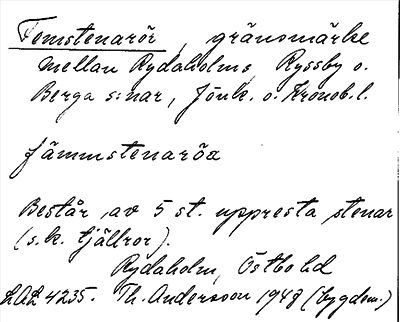 Femstenarör, gränsmärke
mellan Rydaholms, Ryssby o.
Berga s:nar, Jönk. o. Kronob. l.
fämmstenaröa
Består av 5 st. uppresta stenar
(s.k. tjällror).
Rydaholm, Östbo hd
4235. Th. Andersson 1948 (bygdem.)